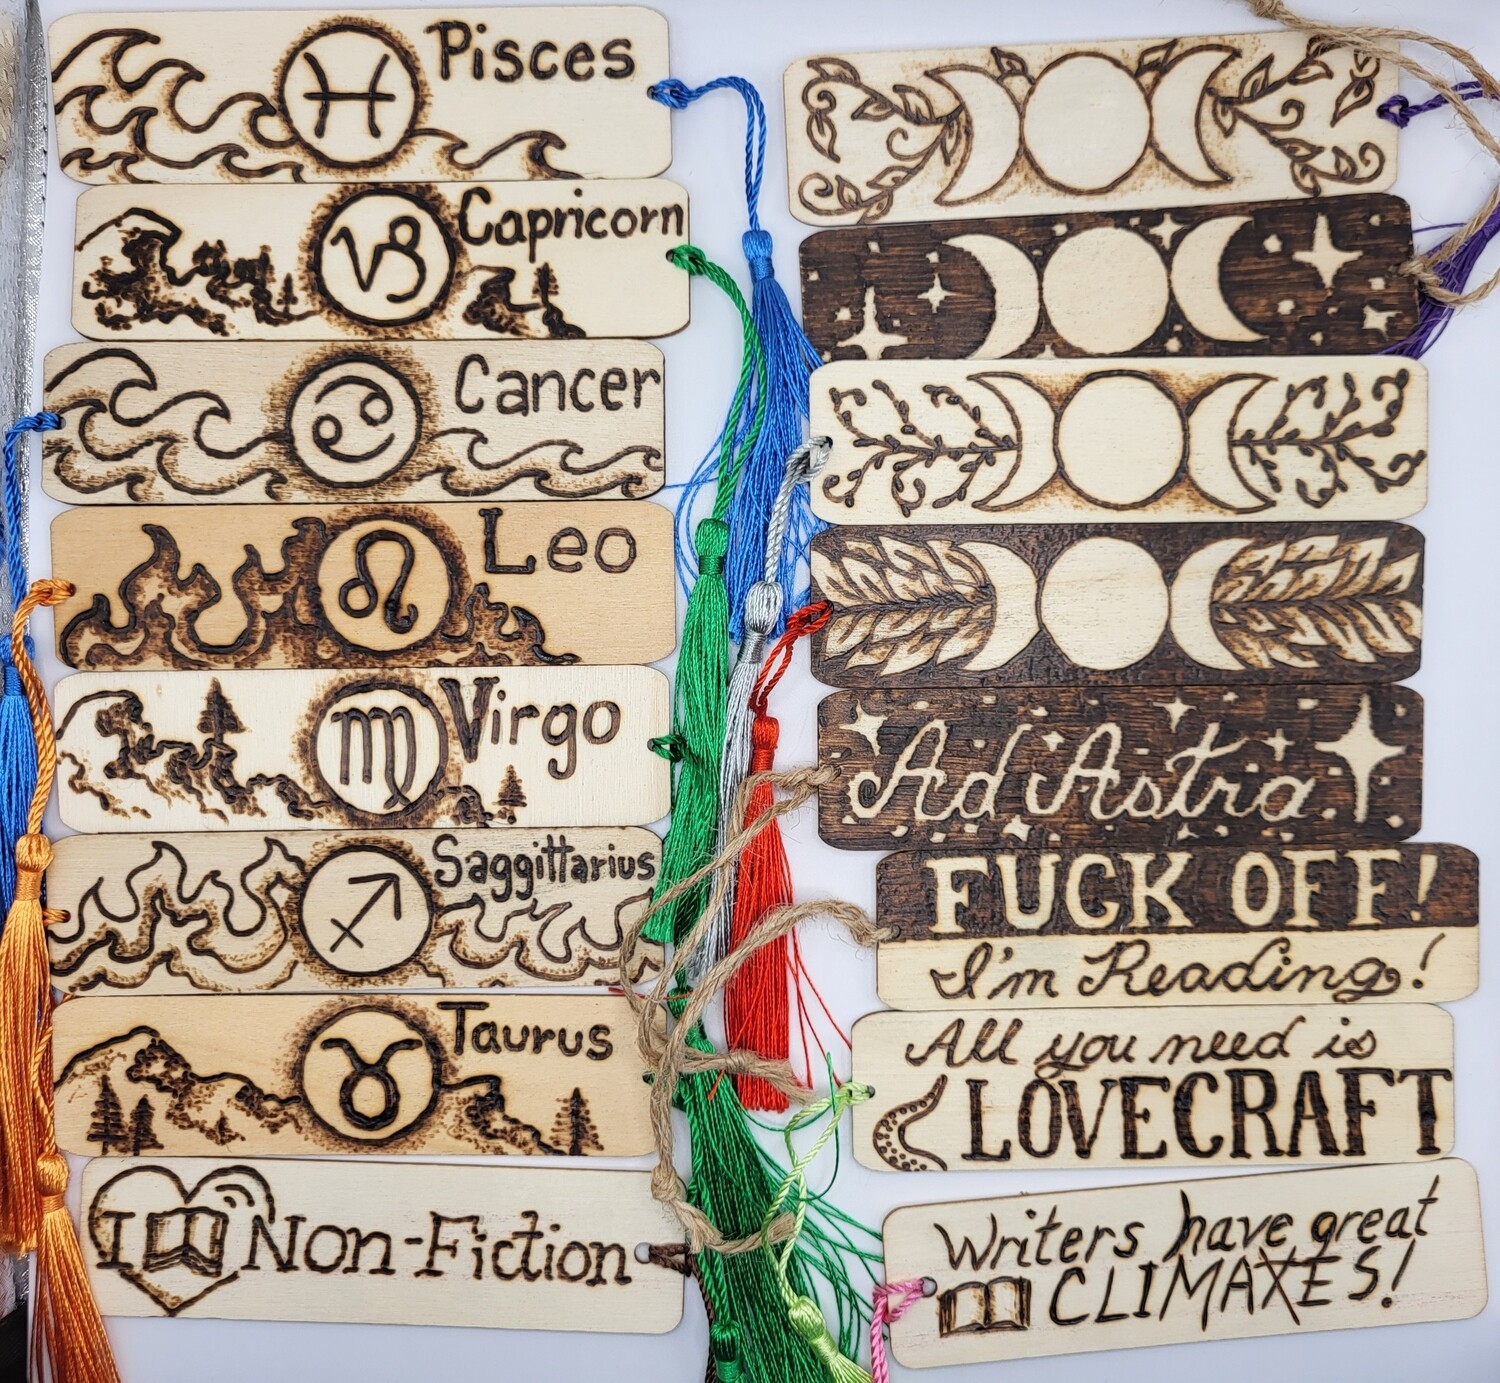 Pisces
Capricorn
Cancer
Leo
Virgo
Saggittarius
Taurus
I Non-Fiction
Ad Astra
FUCK OFF!
I'm Reading!
All you need is
LOVECRAFT
Writers have great
CLIMAXES!